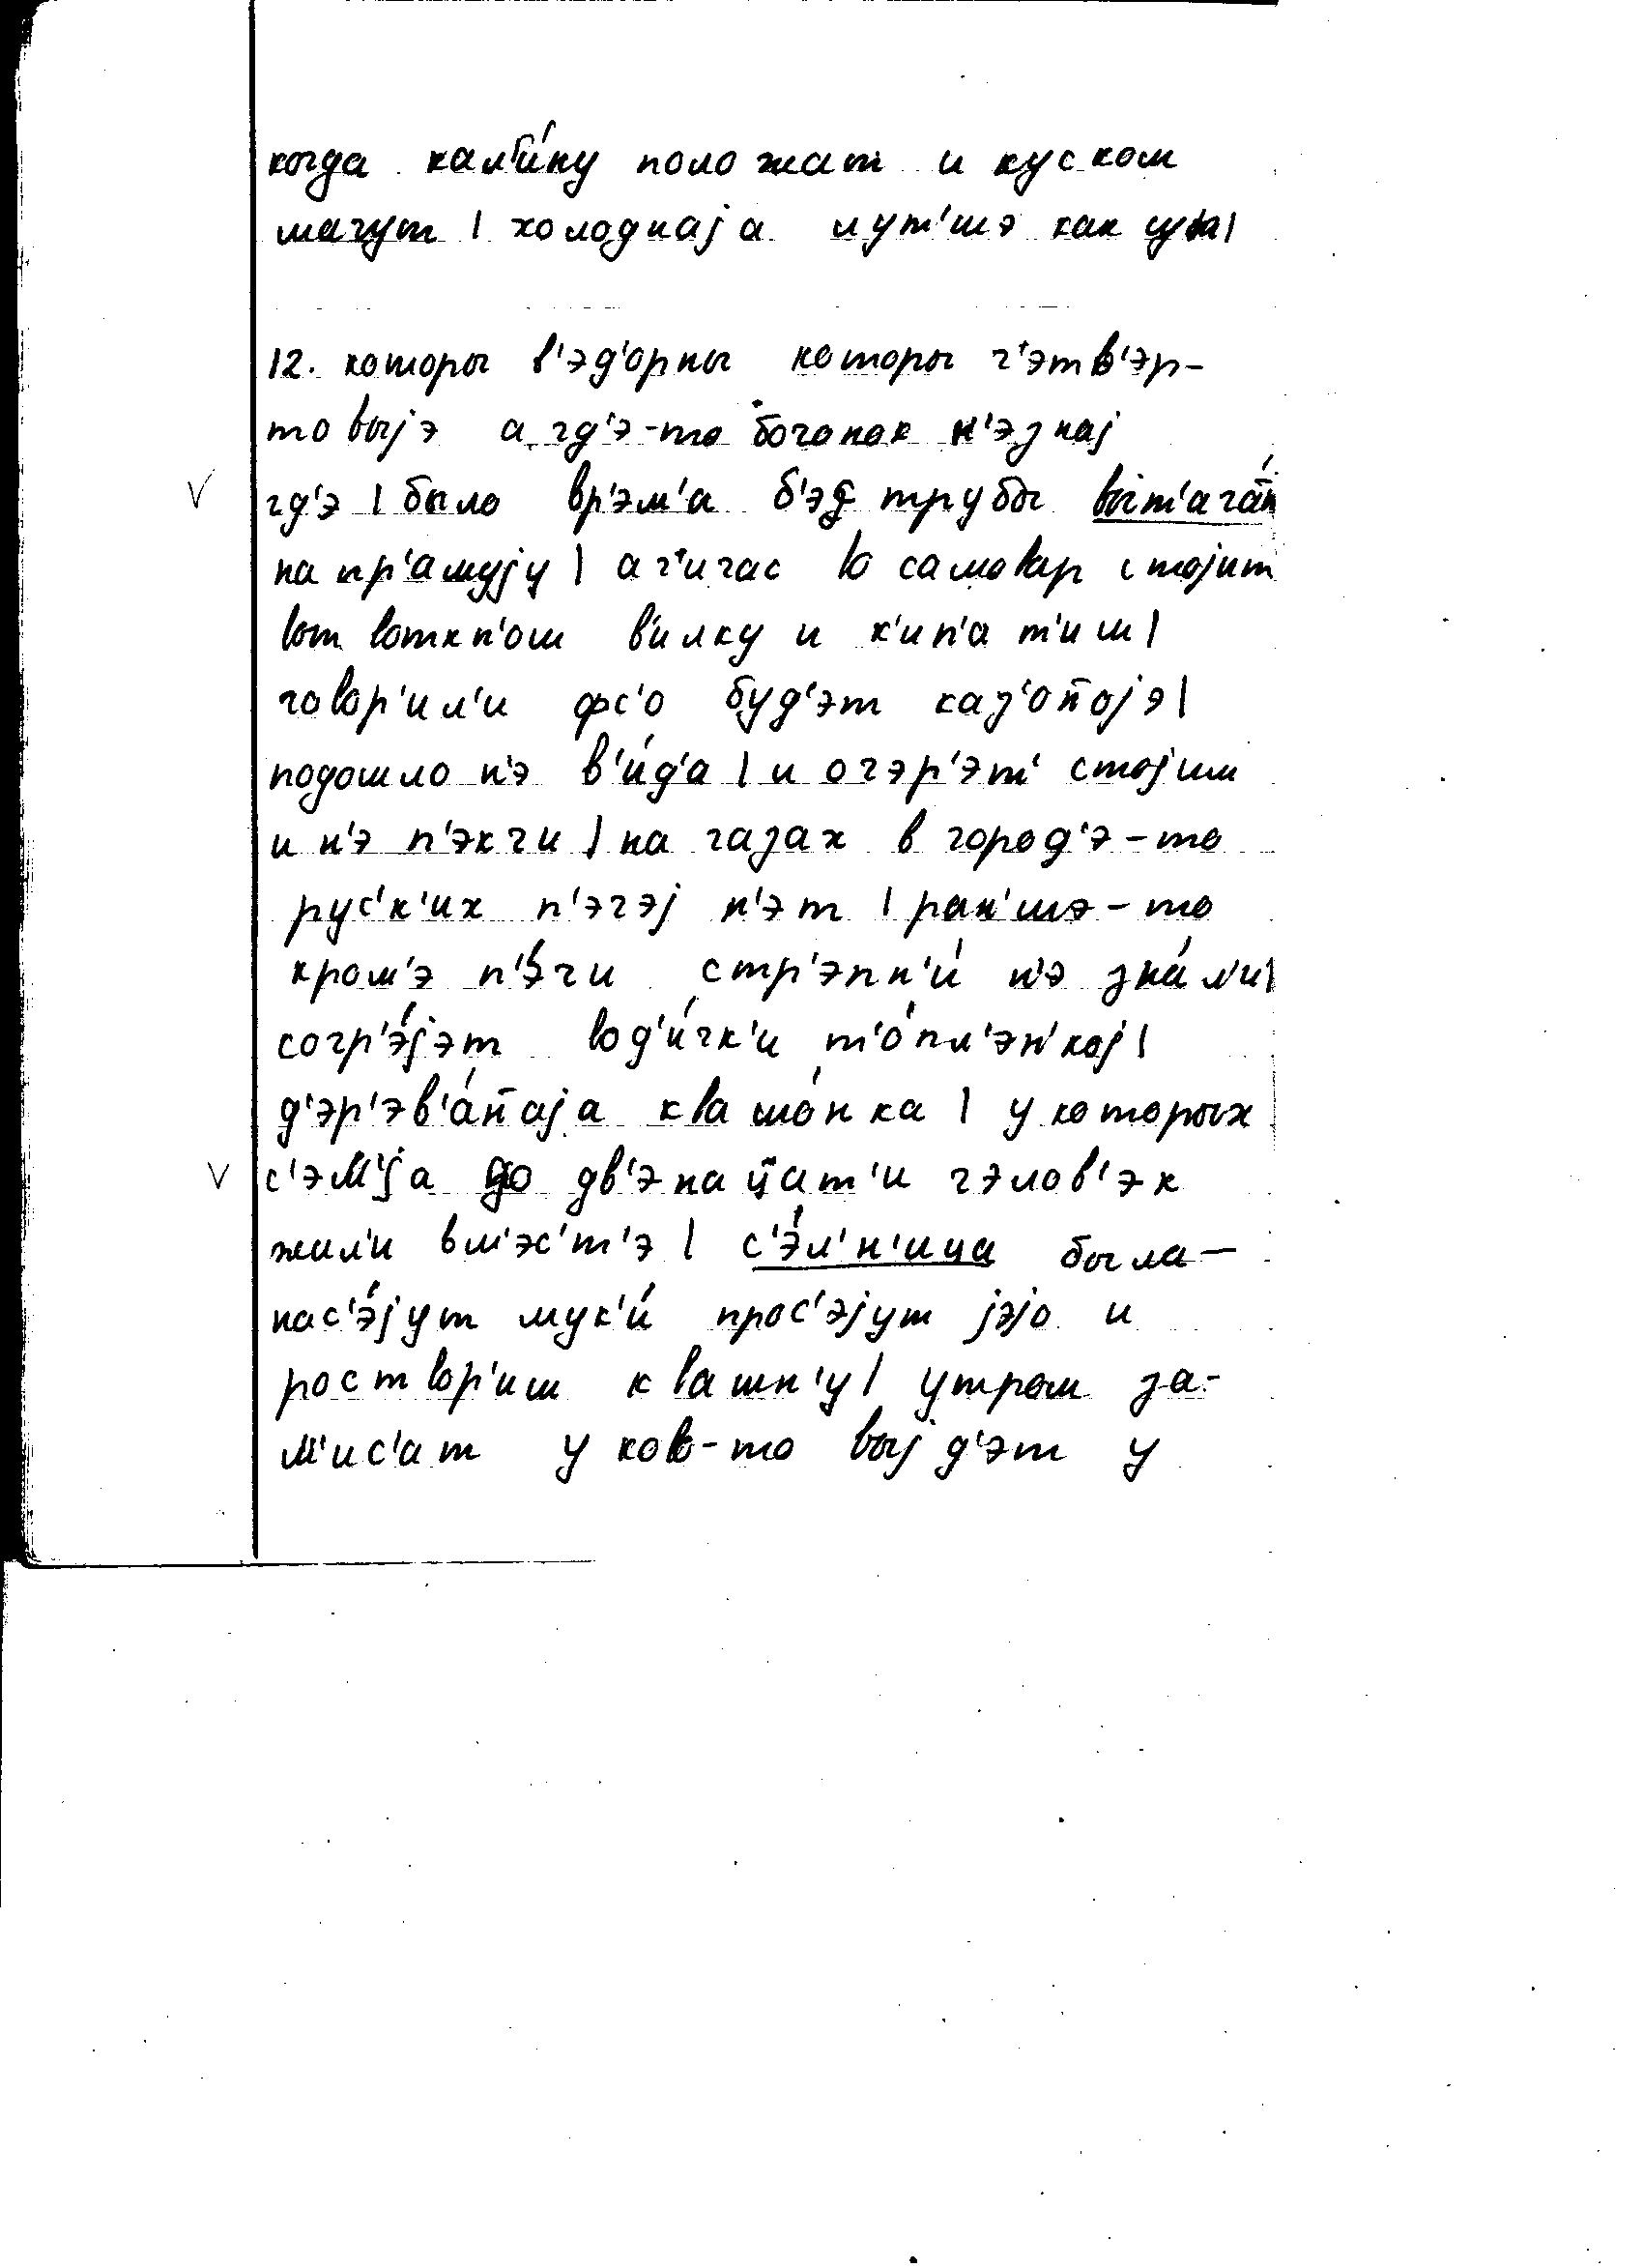 когда кал'и́ну положат и куском
мачут | холоднаjа лут'шэ как
12. которы в'эд'орны которы ч'этв'эр-
товыjэ а гд'э-то бочонок н'эзнаj
V гд'э | было вр'эм'а б'эд трубы
на пр'амуjу | с'ичас во самовар стоjит
вот воткн'ош в'илку и к'ип'а т'иш |
говор'ил'и фс'о буд'эт каз'он̄оjэ |
подошло н'э в'и́д'а | и очэр'эт' стоjим
и н'э п'экчи | на газах в город'э-то
рус'к'их п'эчэj н'эт | ран'шэ-то
кром'э п'э́чи стр'эпн'и́ н'э зна́л'и |
согр'э́jэт вод'и́чк'и т'о́пл'эн'коj |
д'эр'эв'а́н̄аjа квашо́нка | у которых
V с'эм'jа до дв'энац̄ат'и чэлов'эк
жыл'и вм'эс'т'э | с'э́л'н'ица была —
нас'э́jут мук'и́ прос'эjут jэjо и
роствор'иш квашн'у | утром за-
м'ис'ат у ково-то выjд'эт у